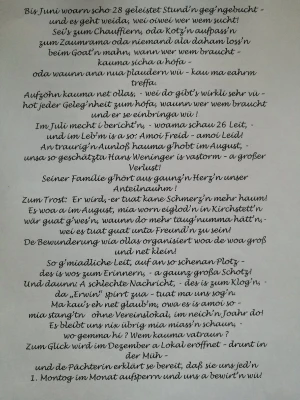 Bis Juni woarn scho 28 geleistet Stund'n geg'ngebucht -
und es geht weida, wei oiwei wer wem sucht!
Sei's zum Chauffiern, oda Kotz'n aufpass'n
zum Zaumrama oda niemand ala daham loss'n
beim Goat'n mahn, wann wer wem braucht -
kauma sicha a hofa -
oda waunn ana nua plaudern wü - kau ma eahm
treffa.
Aufzöhn kauma net ollas, - wei do gibt's wirkli sehr vü -
hot jeder Geleg'nheit zum höfa, waunn wer wem braucht
und er se einbringa wü!
Im Juli mecht i bericht'n, - woama schau 26 Leit, -
und im Leb'm is a so: Amoi Freid - amoi Leid!
An traurig'n Aunloß hauma g'hobt im August, -
unsa so geschätzta Hans Weninger is vastorm - a großer
Verlust!
Seiner Familie g'hört aus gaunz'n Herz'n unser
Anteilnauhm!
Zum Trost: Er wird,-er tuat kane Schmerz'n mehr haum!
Es woa a im August, mia worn eiglod'n in Kirchstett'n
wär guat g'wes'n, waunn do mehr taug'numma hätt'n,-
wei es tuat guat unta Freund'n zu sein!
De Bewunderung wia ollas organisiert woa de woa groß
und net klein!
So g'miadliche Leit, auf an so schenan Plotz -
des is wos zum Erinnern, - a gaunz große Schotz!
Und daunn: A schlechte Nachricht, - des is zum Klog'n, -
da „Erwin" spirrt zua - tuat ma uns sog'n
Ma kau's eh net glaub'm, owa es is amoi so -
mia stang'tn ohne Vereinslokal, im neich'n Joahr do!
Es bleibt uns nix übrig mia miass'n schaun, -
wo gemma hi? Wem kauma vatraun?
Zum Glück wird im Dezember a Lokal eröffnet - drunt in
der Müh -
und de Pächterin erklärt se bereit, daß sie uns jed'n
1. Montog im Monat aufsperrn und uns a bewirt'n wü!